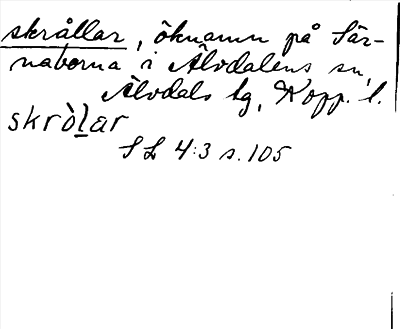 skrållar, öknamn på Sär-
naborna i Älvdalens sn,
Älvdals tg, Kopp. l.
skròlar
SL 4:3 s. 105